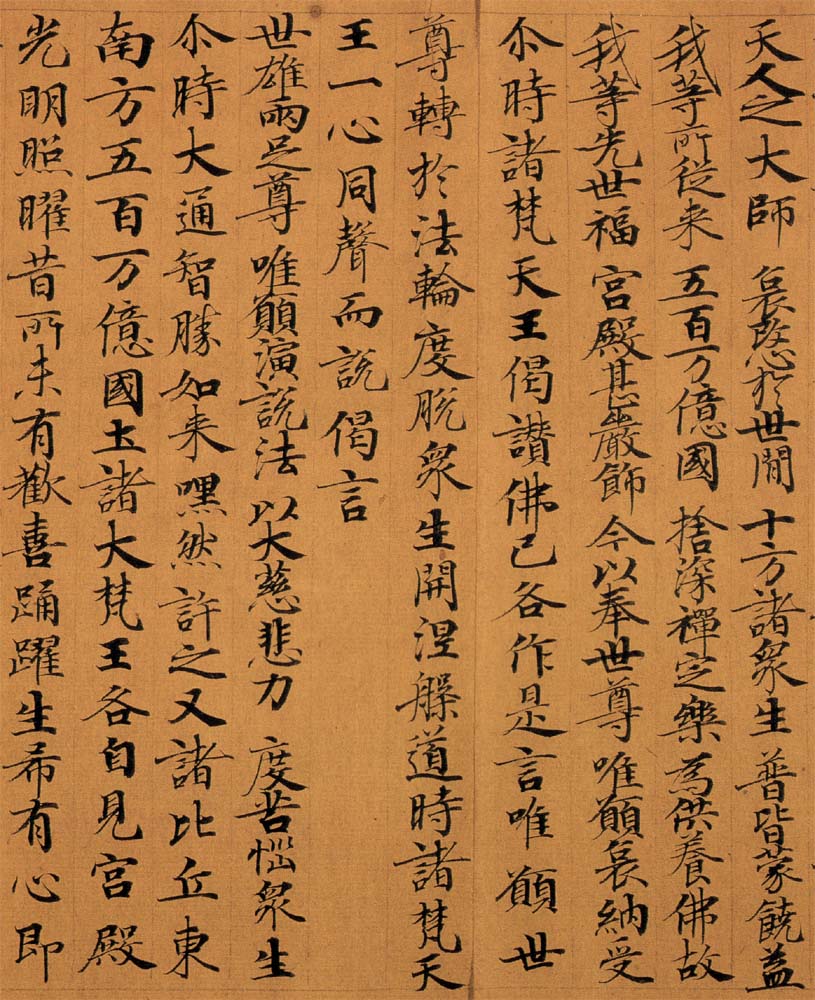 天人之大師 哀愍於世間 十方諸衆生 普皆蒙饒益
我等所從来 五百万億國 捨深禪定樂 為供養佛故
我等先世福 宮殿甚嚴飾 今以奉世尊 唯願哀納受
尒時諸梵天王偈讃佛已各作是言唯願世
尊轉於法輪度脫衆生開涅槃道時諸梵天
王一心同聲而說偈言
世雄兩足尊 唯願演說法 以大慈悲力 度苦惱衆生
尒時大通智勝如来嘿然許之又諸比丘東
南方五百万億國土諸大梵王各自見宮殿
光明照曜昔所未有歡喜踊躍生希有心即